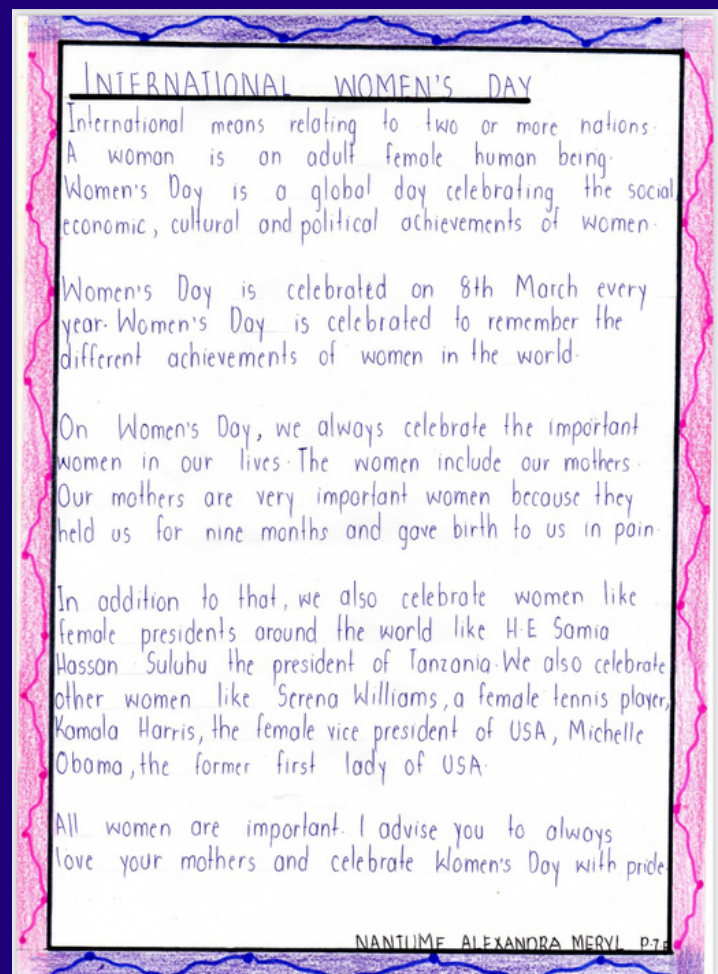 INTERNATIONAL WOMEN'S DAY
International means relating to two or more nations.
A woman is an adult female human being.
Women's Day is a global day celebrating the social,
economic, cultural and political achievements of women.
Women's Day is celebrated on 8th March every
year. Women's Day is celebrated to remember the
different achievements of women in the world.
On Women's Day, we always celebrate the important
women in our lives. The women include our mothers.
Our mothers are very important women because they
held us for nine months and gave birth to us in pain.
In addition to that, we also celebrate women like
female presidents around the world like H.E Samia
Hassan Suluhu the president of Tanzania. We also celebrate
other women like Serena Williams, a female tennis player,
Kamala Harris, the female vice president of USA, Michelle
Obama, the former first lady of USA.
All women are important. I advise you to always
love your mothers and celebrate Women's Day with pride.
NANTUME ALEXANDRA MERYL